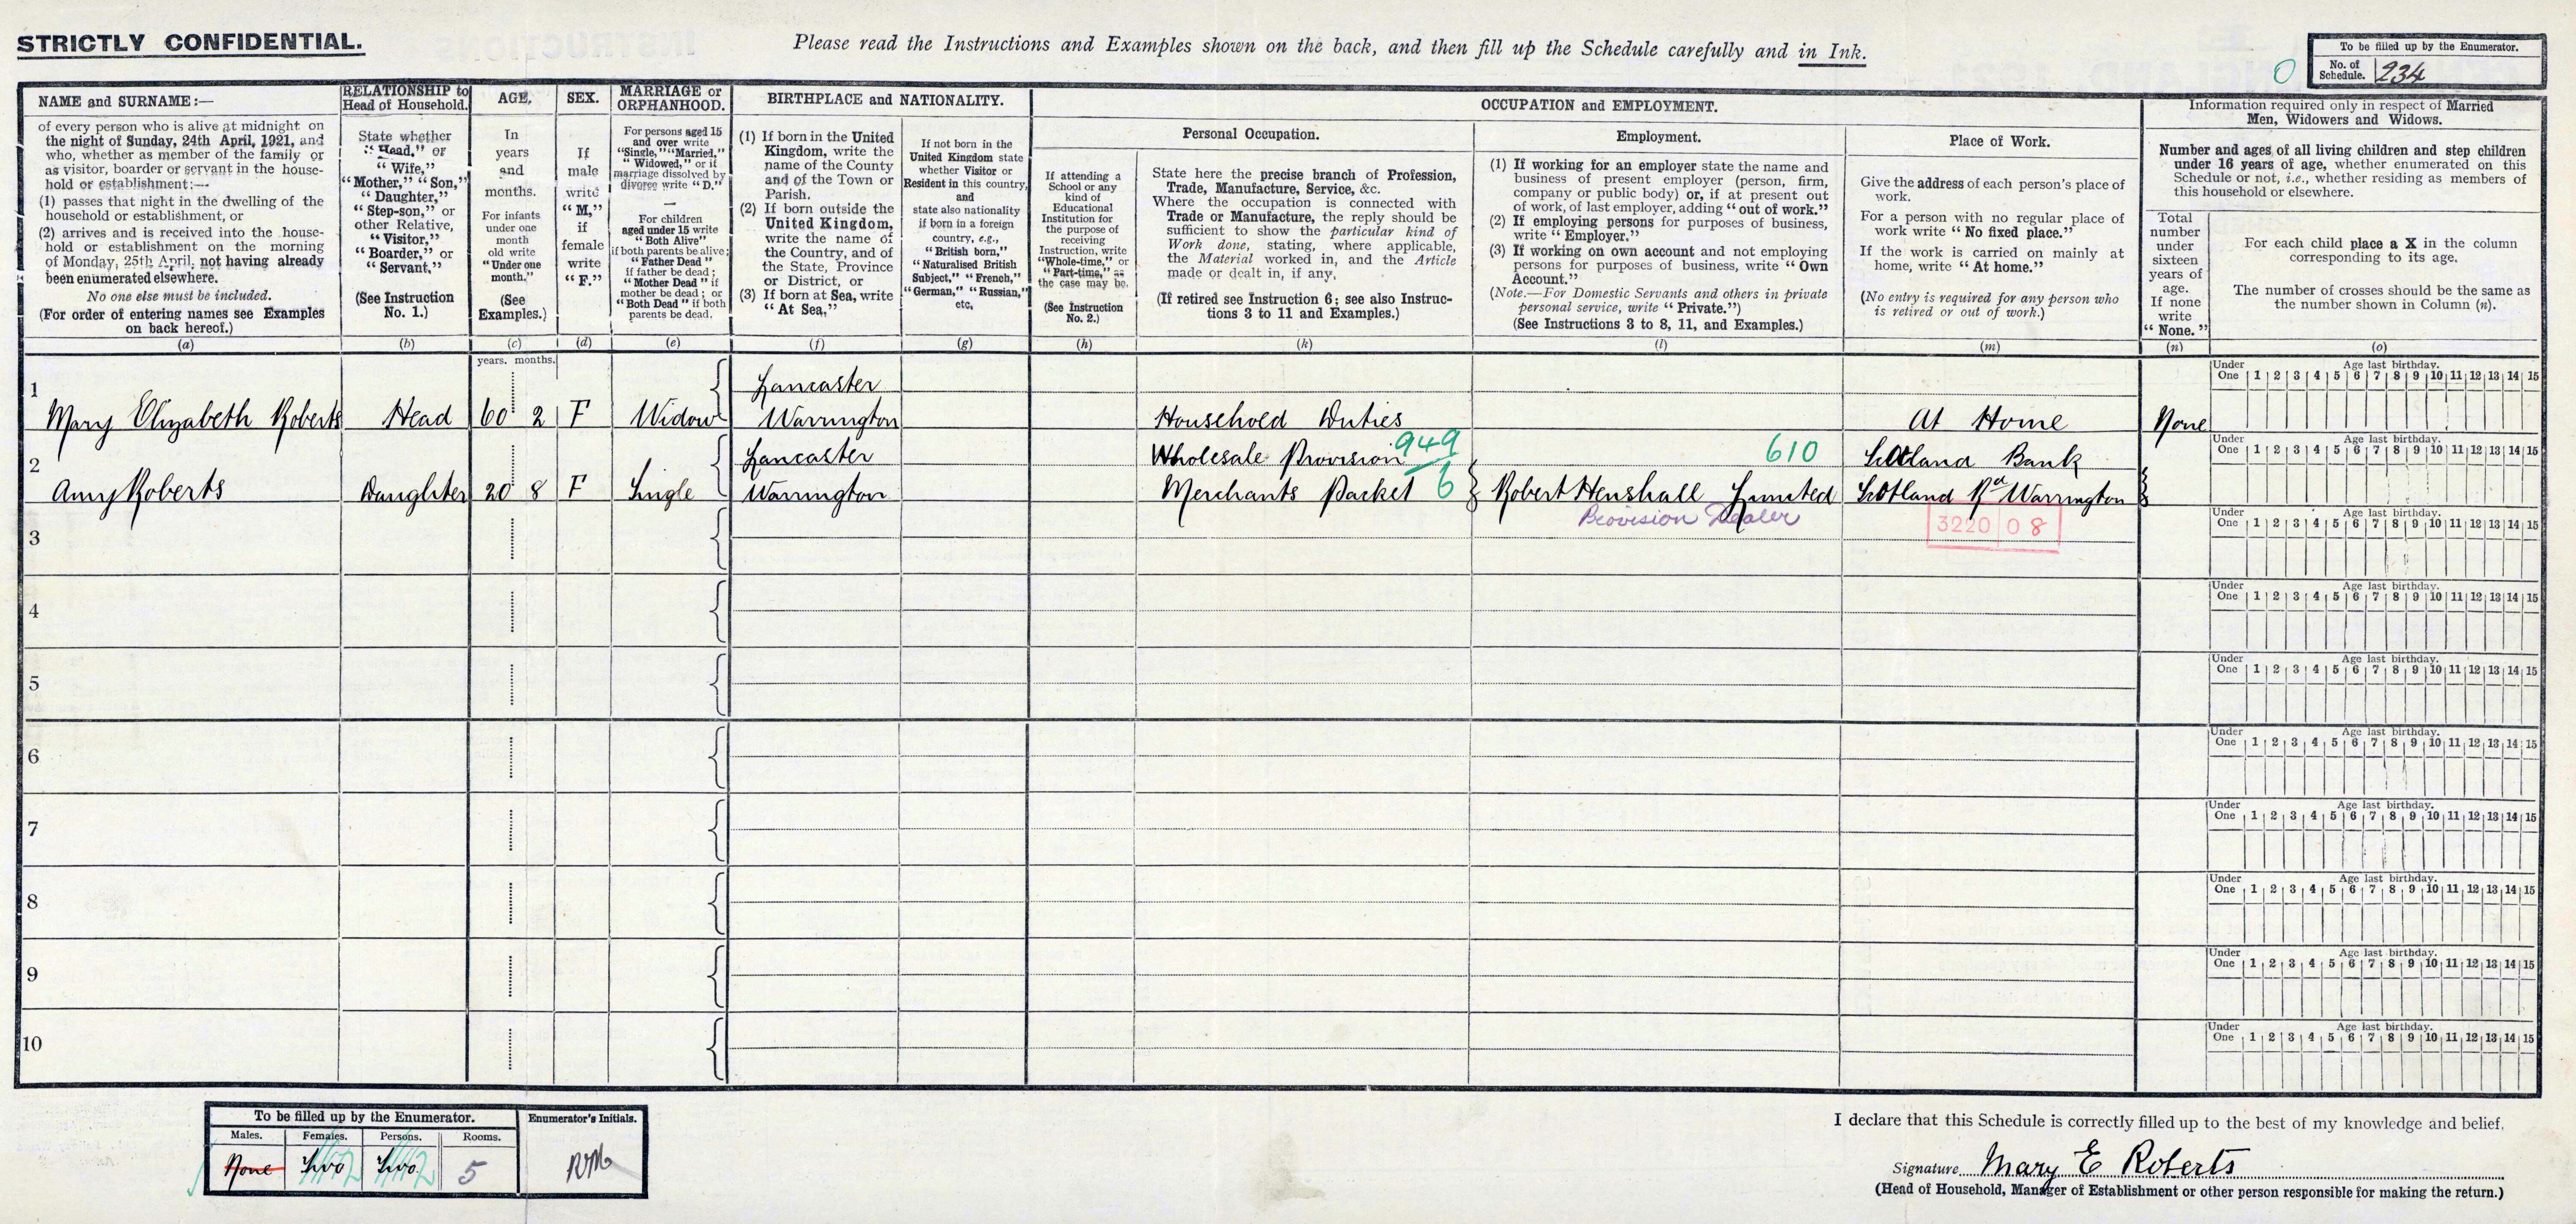 STRICTLY CONFIDENTIAL.
Please read the Instructions and Examples shown on the back, and then fill up the Schedule carefully and in Ink.
To be filled up by the Enumerator.
No. of Schedule. 234
0
NAME and SURNAME:—
of every person who is alive at midnight on
the night of Sunday, 24th April, 1921, and
who, whether as member of the family or
as visitor, boarder or servant in the house-
hold or establishment:—
(1) passes that night in the dwelling of the
household or establishment, or
(2) arrives and is received into the house-
hold or establishment on the morning
of Monday, 25th April, not having already
been enumerated elsewhere.
No one else must be included.
(For order of entering names see Examples
on back hereof.)
(a)
RELATIONSHIP to
Head of Household.
State whether
"Head," or
"Wife,"
"Mother," "Son,"
"Daughter,"
"Step-son," or
other Relative,
"Visitor,"
"Boarder," or
"Servant."
(See Instruction
No. 1.)
(b)
AGE.
In
years
and
months.
For infants
under one
month
old write
"Under one
month."
(See
Examples.)
(c)
SEX.
If
male
write
"M,"
if
female
write
"F."
(d)
MARRIAGE or
ORPHANHOOD.
For persons aged 15
and over write
"Single," "Married,"
"Widowed," or if
marriage dissolved by
divorce write "D."
—
For children
aged under 15 write
"Both Alive"
if both parents be alive;
"Father Dead"
if father be dead;
"Mother Dead" if
mother be dead; or
"Both Dead" if both
parents be dead.
(e)
BIRTHPLACE and NATIONALITY.
(1) If born in the United
Kingdom, write the
name of the County
and of the Town or
Parish.
(2) If born outside the
United Kingdom,
write the name of
the Country, and of
the State, Province
or District, or
(3) If born at Sea, write
"At Sea,"
(f)
If not born in the
United Kingdom state
whether Visitor or
Resident in this country,
and
state also nationality
if born in a foreign
country, e.g.,
"British born,"
"Naturalised British
Subject," "French,"
"German," "Russian,"
etc.
(g)
OCCUPATION and EMPLOYMENT.
If attending a
School or any
kind of
Educational
Institution for
the purpose of
receiving
Instruction, write
"Whole-time," or
"Part-time," as
the case may be.
(See Instruction
No. 2.)
(h)
Personal Occupation.
State here the precise branch of Profession,
Trade, Manufacture, Service, &c.
Where the occupation is connected with
Trade or Manufacture, the reply should be
sufficient to show the particular kind of
Work done, stating, where applicable,
the Material worked in, and the Article
made or dealt in, if any.
(If retired see Instruction 6; see also Instruc-
tions 3 to 11 and Examples.)
(k)
Employment.
(1) If working for an employer state the name and
business of present employer (person, firm,
company or public body) or, if at present out
of work, of last employer, adding "out of work."
(2) If employing persons for purposes of business,
write "Employer."
(3) If working on own account and not employing
persons for purposes of business, write "Own
Account."
(Note.—For Domestic Servants and others in private
personal service, write "Private.")
(See Instructions 3 to 8, 11, and Examples.)
(l)
Place of Work.
Give the address of each person's place of
work.
For a person with no regular place of
work write "No fixed place."
If the work is carried on mainly at
home, write "At home."
(No entry is required for any person who
is retired or out of work.)
(m)
Information required only in respect of Married
Men, Widowers and Widows.
Number and ages of all living children and step children
under 16 years of age, whether enumerated on this
Schedule or not, i.e., whether residing as members of
this household or elsewhere.
Total
number
under
sixteen
years of
age.
If none
write
"None."
(n)
For each child place a X in the column
corresponding to its age.
The number of crosses should be the same as
the number shown in Column (n).
(o)
years. months.
1
Lancaster
Mary Elizabeth Roberts Head 60 2 F Widow Warrington Household Duties At Home None
Under One Age last birthday. 1 2 3 4 5 6 7 8 9 10 11 12 13 14 15
2
Lancaster Wholesale Provision 949 610 Scotland Bank
Amy Roberts Daughter 20 8 F Single Warrington Merchants Packer 6 Robert Henshall Limited Scotland Rd Warrington
Provision Dealer 3220 08
Under One Age last birthday. 1 2 3 4 5 6 7 8 9 10 11 12 13 14 15
3
Under One Age last birthday. 1 2 3 4 5 6 7 8 9 10 11 12 13 14 15
4
Under One Age last birthday. 1 2 3 4 5 6 7 8 9 10 11 12 13 14 15
5
Under One Age last birthday. 1 2 3 4 5 6 7 8 9 10 11 12 13 14 15
6
Under One Age last birthday. 1 2 3 4 5 6 7 8 9 10 11 12 13 14 15
7
Under One Age last birthday. 1 2 3 4 5 6 7 8 9 10 11 12 13 14 15
8
Under One Age last birthday. 1 2 3 4 5 6 7 8 9 10 11 12 13 14 15
9
Under One Age last birthday. 1 2 3 4 5 6 7 8 9 10 11 12 13 14 15
10
Under One Age last birthday. 1 2 3 4 5 6 7 8 9 10 11 12 13 14 15
To be filled up by the Enumerator.
Males. Females. Persons. Rooms.
None Two Two 5
Enumerator's Initials.
I declare that this Schedule is correctly filled up to the best of my knowledge and belief.
Signature Mary E Roberts
(Head of Household, Manager of Establishment or other person responsible for making the return.)